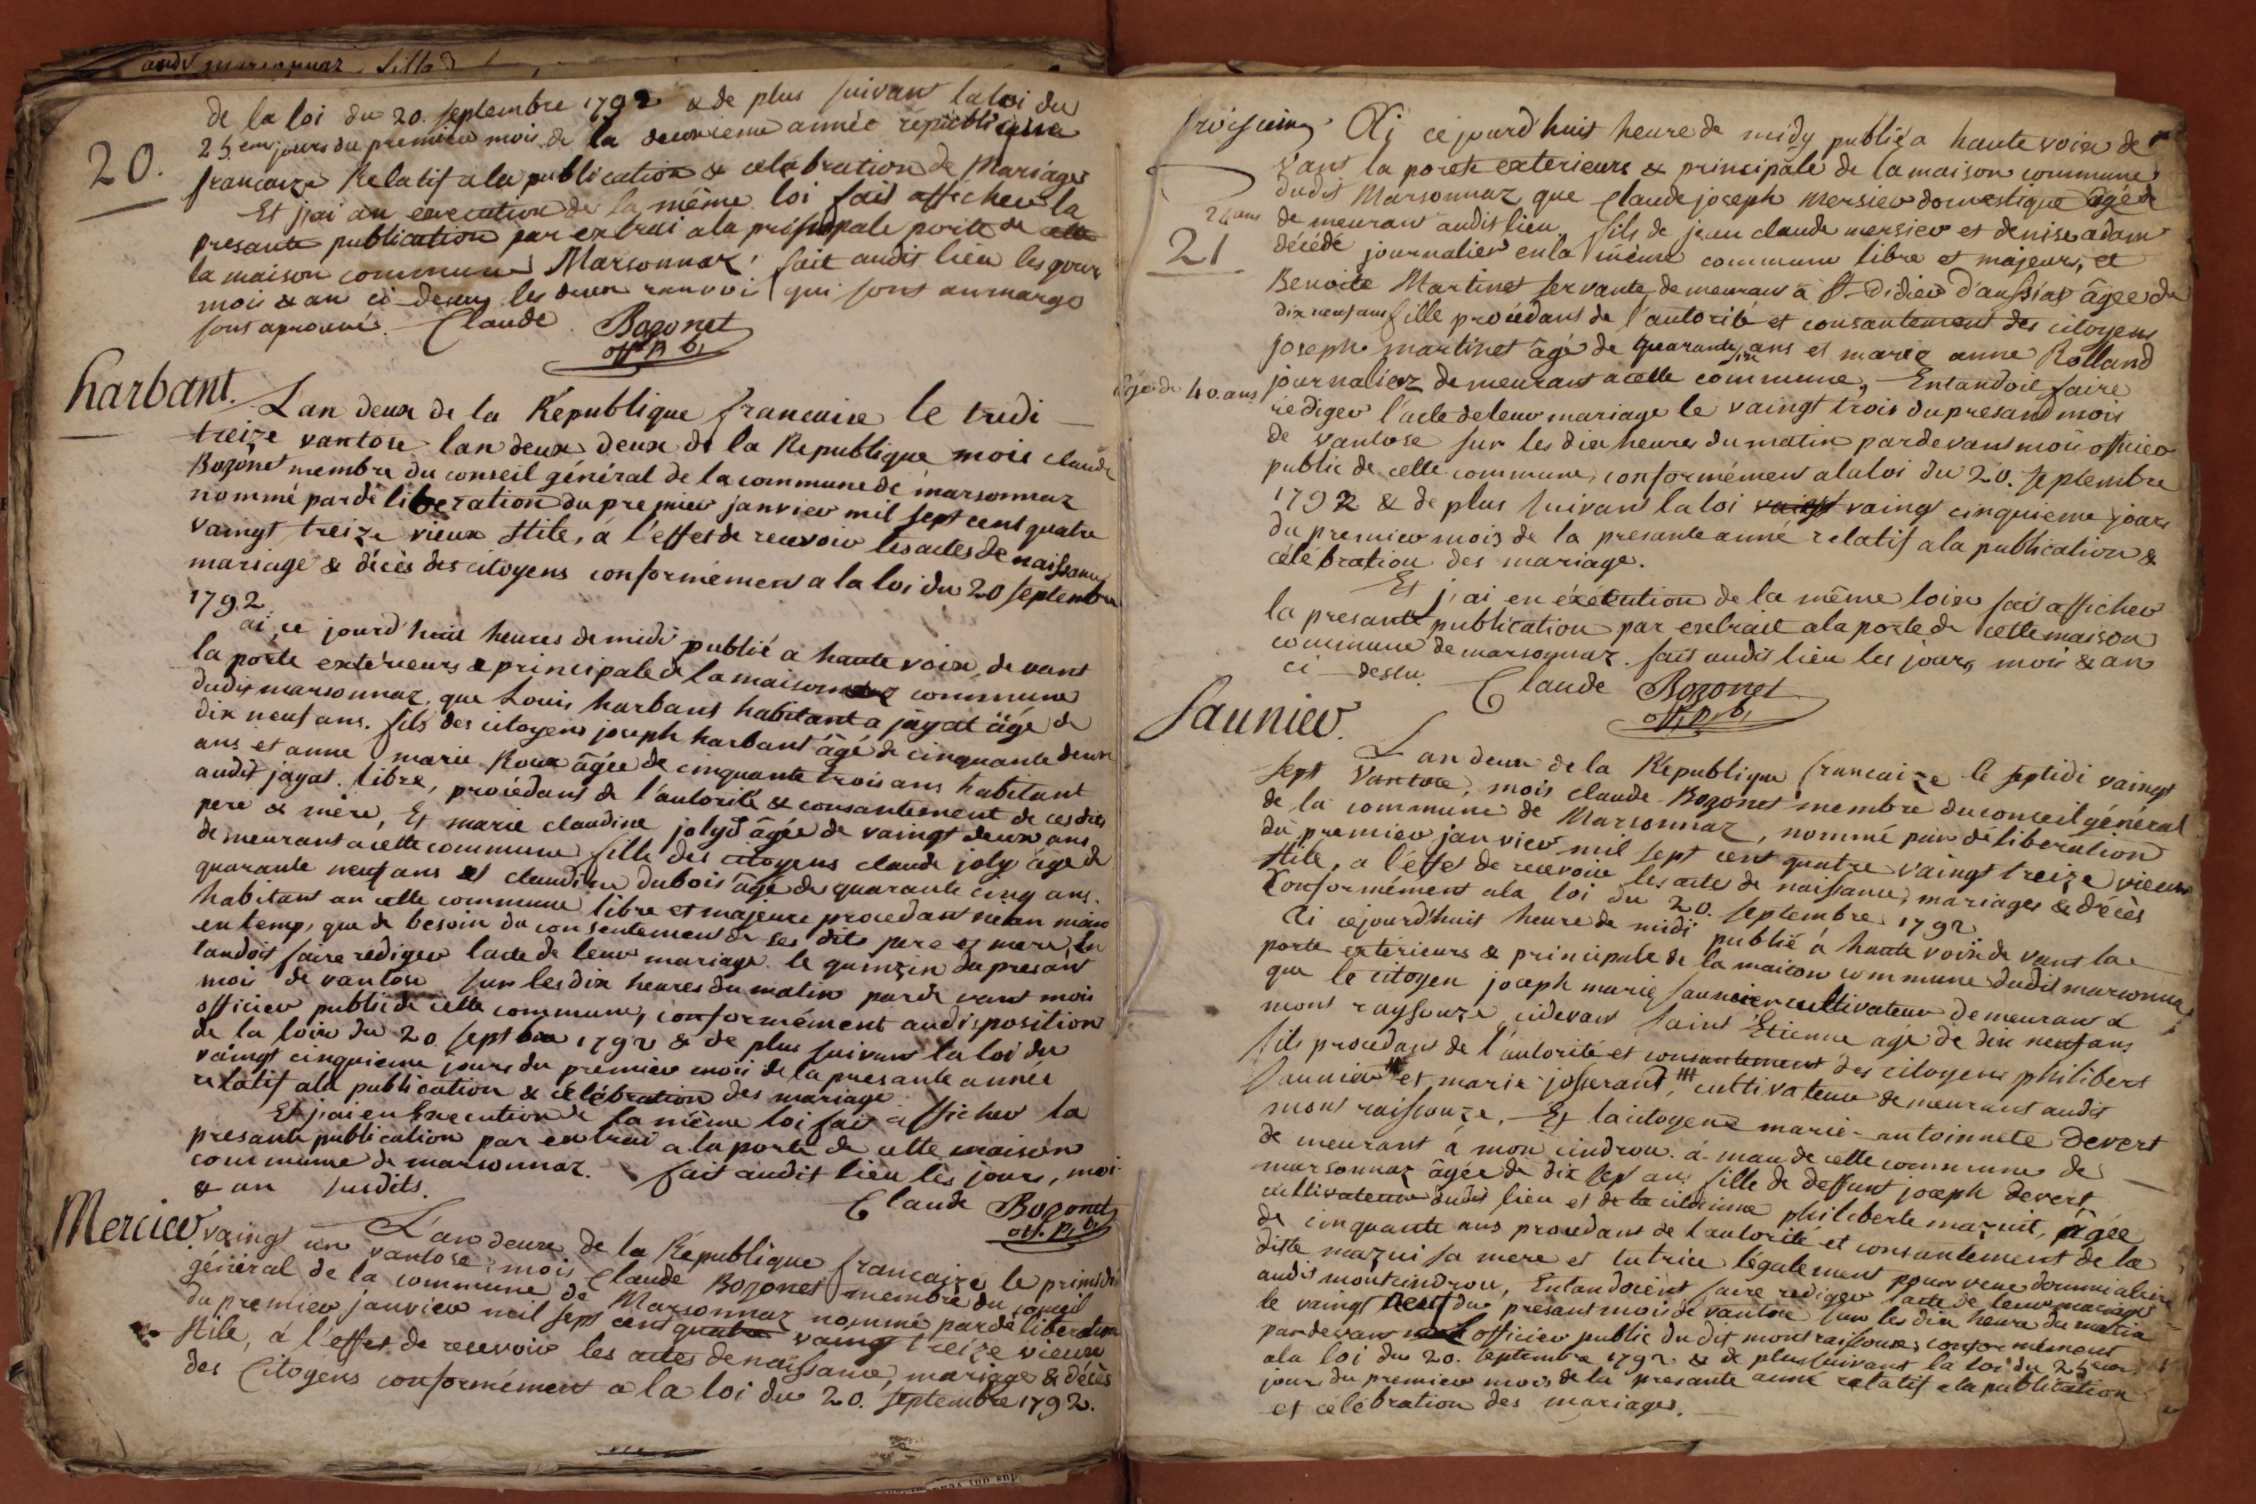 audit marsonnaz fille d
20.
de la loi du 20. septembre 1792 & de plus suivant la loi du
25.eme jours du premier mois de la deuxieme année républiquene
francaize Relatif a la publication & celébration de Mariages
Et j'ai an execution de la même loi fait afficher la
presante publication par extrai a la prinsipale porte de
la maison commune Marsonnaz. fait audit lieu les jours
mois & an ci-desus les deux ranvoi qui sont an marge
sont aprouvés. Claude Bozonet
off. p. b.
harbant.
L'an deux de la République francaise le tridi
treize vantose lan deux deux de la Republique mois claude
Bozonet membre du conseil général de la commune de marsonnaz
nommé par déliberation du premier janvier mil sept cent quatre
vaingt treize vieux stile, a l'effet de recevoir les actes de naissance
mariage & décès des citoyens conformémen a la loi du 20 septembre
1792.
ai, ce jourd'huit heures de midi publié a haute voix, devant
la porte extérieurs & principale de la maison commune
dudit marsonnaz, que Louis harbant habitant a jayat âgé de
dix neuf ans. fils des citoyens joseph harbant âgé de cinquante deux
ans et anne marie Roux âgée de cinquante trois ans habitant
audit jayat. libre, procédant de l'autorité & consantement de ces dits
pere & mère, Et marie claudine joly âgée de vaingt deux ans
demeurant a cette commune fille des citoyens claude joly âgé de
quarante neuf ans et claudine dubois âgé de quarante cinq ans.
habitant an cette commune libre et majeure procedant nean moins
en temp, que de besoin du consentement de ses dits pere et mere, En
tandoit faire rediger lacte de leur mariage le quinzin du presant
mois de vantose sur les dix heures du matin parde vant mois
officier public de cette commune, conformément au disposition
de la loix du 20 septbre 1792 & de plus suivant la loi du
vaingt cinquieme jours du premier mois de la presante année
relatif ala publication & celébration des mariage.
Et j'ai en Execution de la même loi fait afficher la
presante publication par extrai a la porte de cette maison
commune de marsonnaz. fait audit lieu les jours, moi
& an susdits.
Claude Bozonet
off. p. b.
Mercier
L'an deux de la République francaize le primidi
vaingt un vantose, mois Claude Bozonet membre du conseil
général de la commune de Marsonnaz nommé par déliberation
du premier janvier mil sept cent quatre vaingt treize vieux
stile, à l'effet de recevoir les actes de naissance, mariage & décès
des Citoyens conformément a la loi du 20. septembre 1792.
Ai cejourd'huit heure de midy publié a haute voix de
vant la porte exterieurs & principale de la maison commune
dudit Marsonnaz que Claude joseph Mersier domestique âgé de
24 ans
21
demeurant audit lieu, fils de jean claude mersier et denise adam
décédé journalier en la même commune libre et majeurs, et
Benoite Martinet servante, demeurant a St-Didier d'aussiat âgée de
dix neuf ans fille procédant de l'autorité et consantement des citoyens
joseph martinet âgé de quarante six ans et marie anne Rolland
âgée de 40. ans
journaliez demeurant a cette commune, Entandoit faire
rediger l'acte de leur mariage le vaingt trois du presand mois
de vantose sur les dix heures du matin pardevant moi officier
public de cette commune, conformément a la loi du 20. septembre
1792 & de plus suivant la loi vaingt cinquieme jours
du premier mois de la presante anné relatif a la publication &
célébration des mariage.
Et j'ai en exécution de la même loix fait afficher
la presante publication par extrait a la porte de cette maison
commune de marsonnaz. fait audit lieu les jours, mois & an
ci-dessu. Claude Bozonet
off. p. b.
Saunier.
L'an deux de la République francaize le septidi vaingt
sept Vantose, mois claude Bozonet membre du conseil général
de la commune de Marsonnaz, nommé par déliberation
du premier janvier mil sept cent quatre vaingt treize vieux
stile, a l'éffet de recevoir les acte de naissance, mariages & décès
Conformément a la loi du 20. septembre 1792
Ai cejourd'huit heure de midi publié à haute voix de vant la
porte exterieurs & principale de la maison commune dudit marsonnaz
que le citoyen joseph marie saunier cultivateur demeurant a
mont raysouze cidevant saint Etienne âgé de dix neuf ans
fils procedant de l'autorité et consantement des citoyens philibert
saunier et marie josserand, cultivateur demeurant audit
mont raissouze. Et la citoyene marie-antoinnete Devert
demeurant à mon cindrou. a mau de cette commune de
marsonnaz âgée de dix sept ans fille de deffunt joseph devert
cultivateur dudit lieu et de la citoienne philiberte mazuit, âgée
de cinquante ans procedant de l'autorité et consantement de la
dite mazui sa mere et tutrice légalement pourvene
audit mont cindrou, Entandoient faire rediger lacte de leur mariage
le vaingt neuf du presant mois de vantose sur les dix heure du matin
pardevant officier public du dit mont raissouse, conformément
ala loi du 20. septembre 1792 & de plus suivant la loi du 25eme
jours du premier mois de la presante anné relatif a la publication
et celébration des mariages.